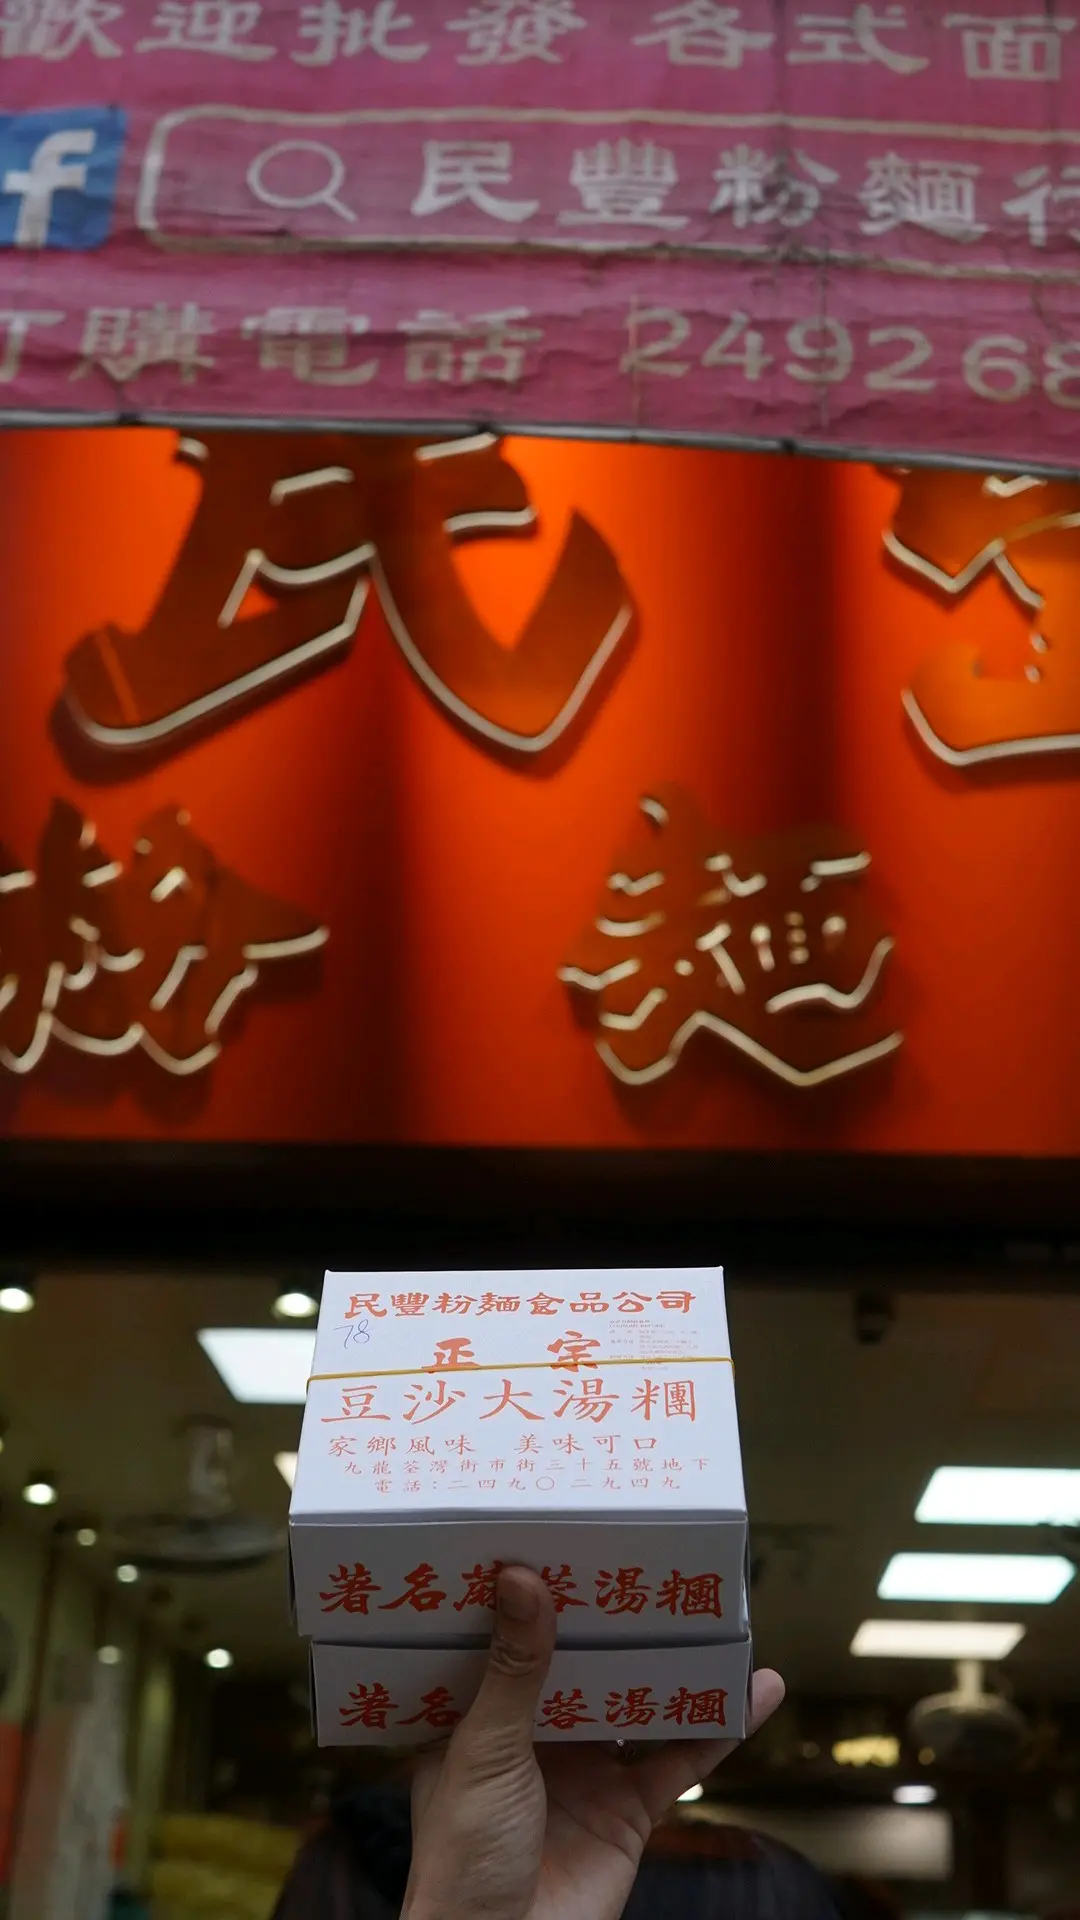 歡迎批發 各式面
f 民豐粉麵行
訂購電話 2492 68
民豐
粉麵
民豐粉麵食品公司
78
正宗
豆沙大湯糰
家鄉風味 美味可口
九龍荃灣街市街三十五號地下
電話:二四九〇二九四九
著名蔴蓉湯糰
著名蓉湯糰